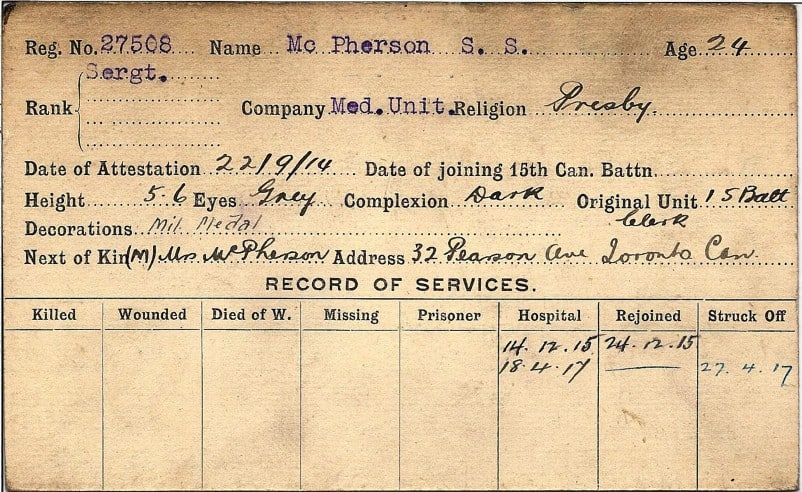 Reg. No. 27508 Name Mc Pherson S. S. Age 24
Sergt.
Rank Company Med. Unit. Religion Presby.
Date of Attestation 22/9/14 Date of joining 15th Can. Battn.
Height 5.6 Eyes Grey Complexion Dark Original Unit 15 Batt
Clerk
Decorations Mil. Medal
Next of Kin (M) Mrs. McPherson Address 32 Pearson Ave Toronto Can.
RECORD OF SERVICES.
Killed Wounded Died of W. Missing Prisoner Hospital Rejoined Struck Off
14.12.15 24.12.15
18.4.17 —— 27.4.17